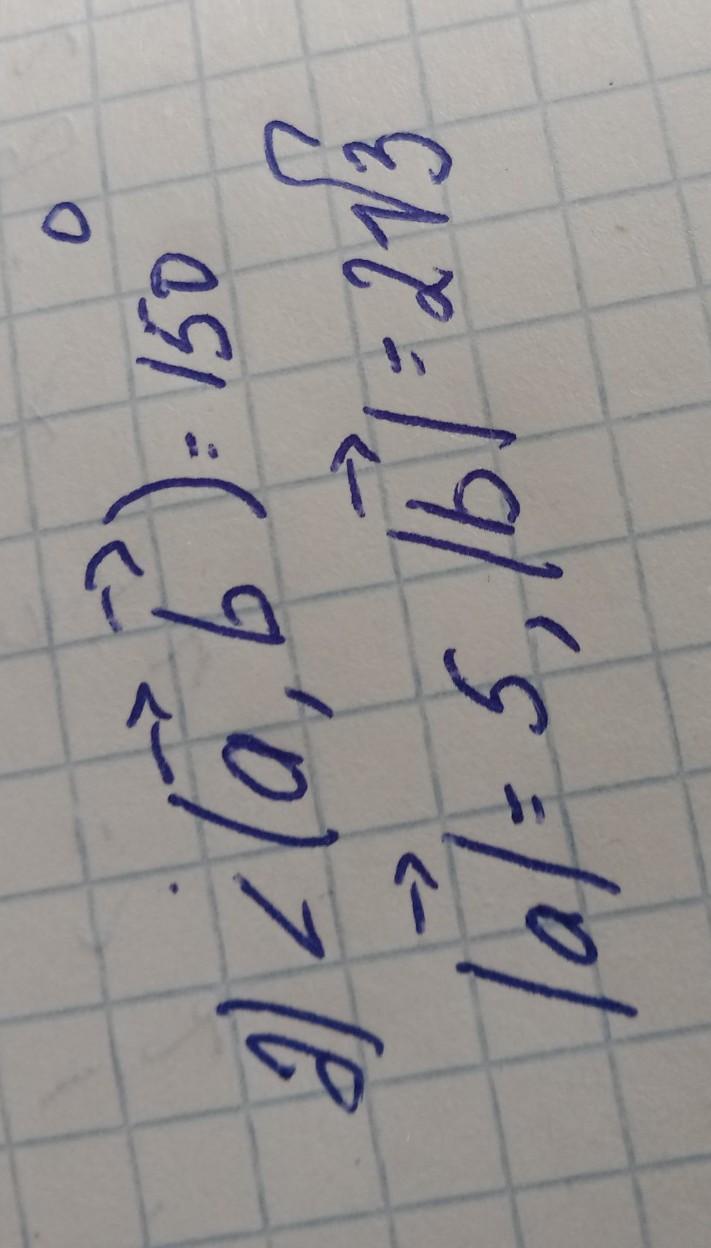 д) ∠(a⃗, b⃗) = 150°
|a⃗| = 5, |b⃗| = 2√3